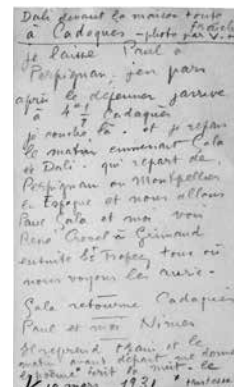 Dali devant la maison toute
à Cadaques - photo par V.
je laisse Paul à
Perpignan, j'en pars
après le déjeuner j'arrive
à 4h Cadaquès
je couche là. et je repars
le matin emmenant Gala
et Dali. qui repart de
Perpignan ou Montpellier
en Espagne et nous allons
Paul Gala et moi voir
René Crevel à Grimaud
ensuite St Tropez, tous où
nous voyons les
Gala retourne Cadaquès
Paul et moi Nimes
Il reprend train et le
matin avant départ me donne
poème écrit la nuit. le
mars 1931